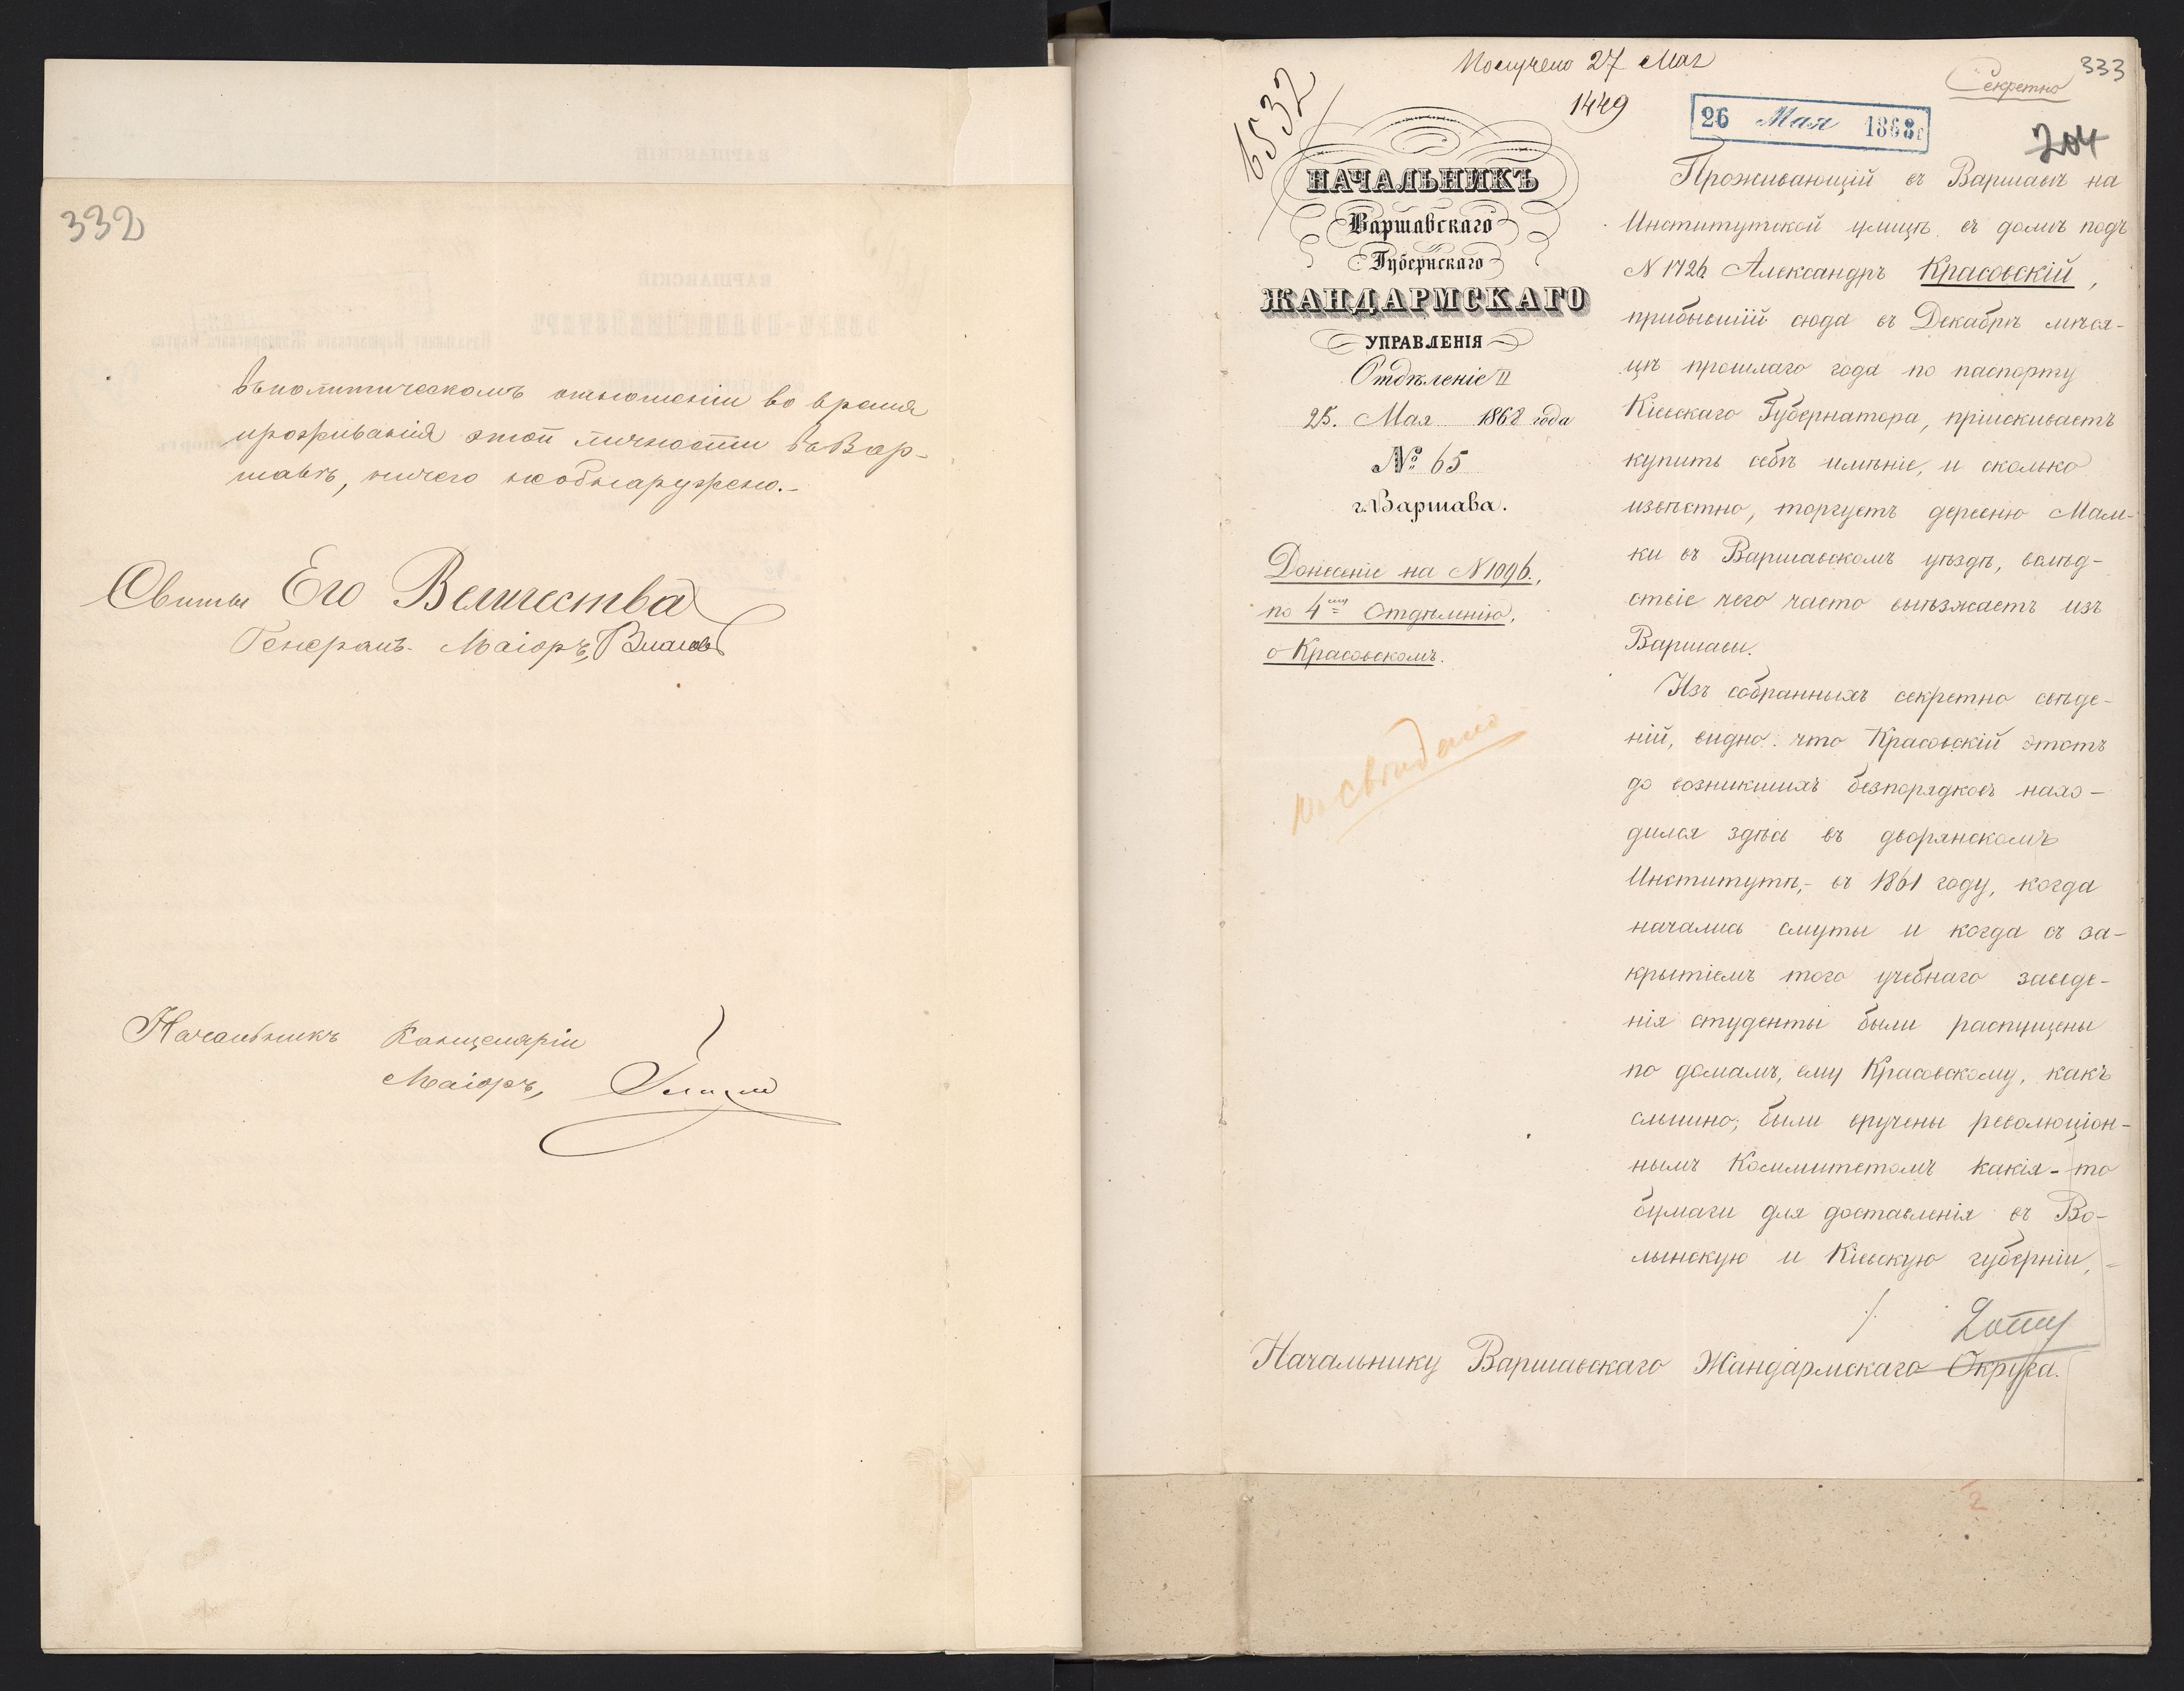 332
въ политическомъ отношеніи во время
проживанія этой личности въ Вар-
шавѣ, ничего необнаружено.-
Свиты Его Величества
Генералъ-Маіоръ, Власовъ
Начальникъ Канцеляріи
Маіоръ,
Получено 27 Мая
333
Секретно
6532
1449
26 Мая 1868 г
204
НАЧАЛЬНИКЪ
Варшавскаго
Губернскаго
ЖАНДАРМСКАГО
УПРАВЛЕНІЯ
Отдѣленіе II
25. Мая 1868 года
№ 65
г. Варшава.
Донесеніе на N 1096.,
по 4му Отдѣленію.
о Красовскомъ.
Проживающій въ Варшавѣ на
Институтской улицѣ въ домѣ подъ
N 1726 Александръ Красовскій,
прибывшій сюда въ Декабрѣ мѣся-
цѣ прошлаго года по паспорту
Кіевскаго Губернатора, пріискиваетъ
купить себѣ имѣніе, и сколько
извѣстно, торгуетъ деревню Мам-
ки въ Варшавскомъ уѣздѣ, вслѣд-
ствіе чего часто выѣзжаетъ изъ
Варшавы.
Изъ собранныхъ секретно свѣде-
ній, видно: что Красовскій этотъ
до возникшихъ безпорядковъ нахо-
дился здѣсь въ дворянскомъ
Институтѣ,- въ 1861 году, когда
начались смуты и когда съ за-
крытіемъ того учебнаго заведе-
нія студенты были распущены
по домамъ, ему Красовскому, какъ
слышно, были вручены революціон-
нымъ Коммитетомъ какія-то
бумаги для доставленія въ Во-
лынскую и Кіевскую губерніи,-
Начальнику Варшавскаго Жандармскаго Округа.
2